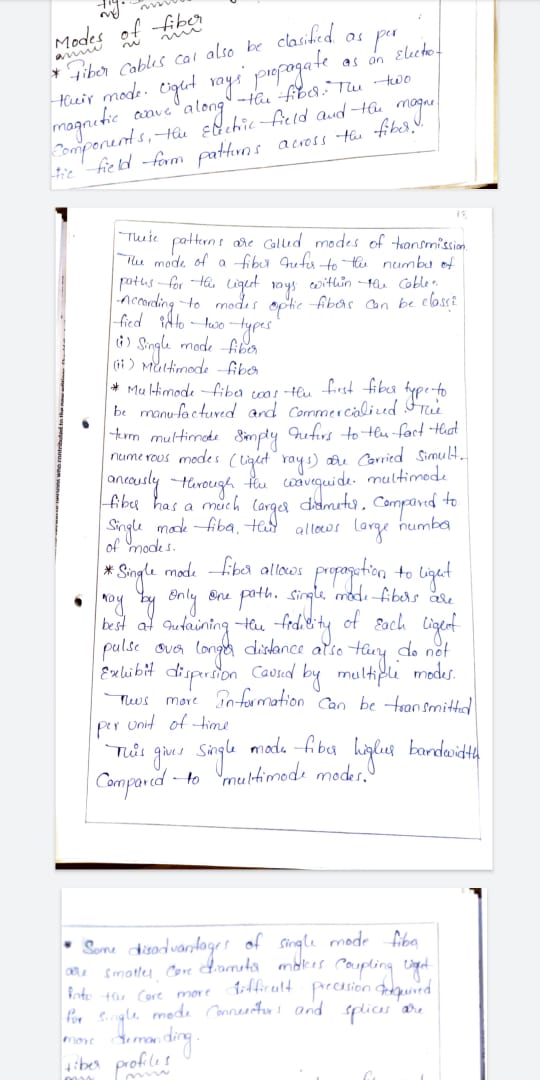 Modes of fiber
* Fiber Cables cal also be clasified as per
their mode. Light rays propagate as an Electro-
magnetic wave along the fiber. The two
Components, the Electric field and the magne
tic field form patterns across the fiber.
These patterns are Called modes of transmission
The mode of a fiber refers to the number of
paths for the light rays within the Cable.
According to modes optic fibers Can be classi
fied into two types
(i) Single mode fiber
(ii) Multimode fiber
* Multimode fiber was the first fiber type to
be manufactured and Commercialized The
term multimode Simply refers to the fact that
numerous modes (light rays) are Carried Simult-
aneously through the waveguide. multimode
fiber has a much larger diameter, Compared to
Single mode fiber, that allows large number
of modes.
* Single mode fiber allows propagation to light
ray by Only One path. Single mode fibers are
best at retaining the fidility of Each light
pulse over longer distance also they do not
Exhibit dispersion Caused by multiple modes.
Thus more Information Can be transmitted
per unit of time
This gives Single mode fiber higher bandwidth
Compared to multimode modes.
* Some disadvantages of single mode fiber
are smaller Core diameter makes Coupling light
Into the Core more difficult precision required
for Single mode Connectors and splices are
more demanding.
Fiber profiles